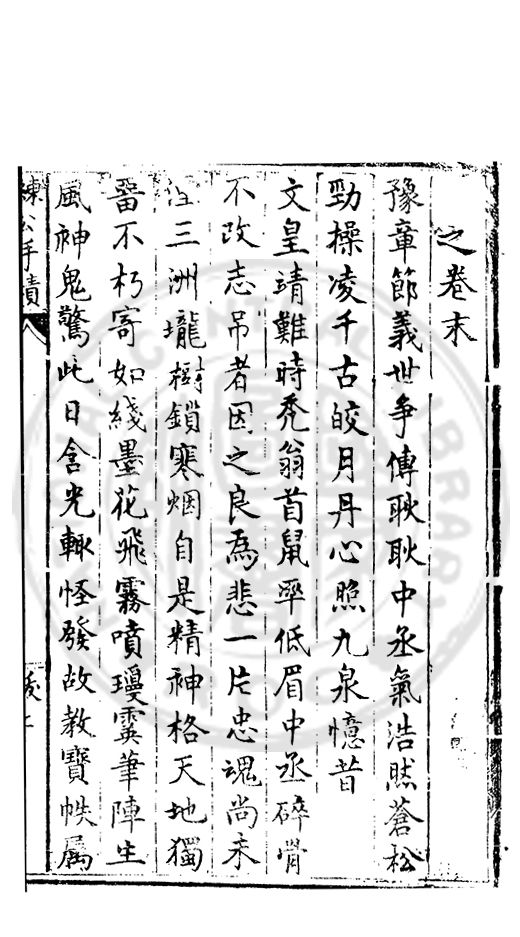 之卷末
豫章節義世爭傳耿耿中丞氣浩然蒼松
勁操凌千古皎月丹心照九泉憶昔
文皇靖難時禿翁首鼠率低眉中丞碎骨
不改志吊者因之良為悲一片忠魂尚未
三洲壠樹鎖寒烟自是精神格天地獨
留不朽寄如綫墨花飛霧噴瓊霙筆陣生
風神鬼驚此日含光輙怪發故教寶帙属
練公手蹟